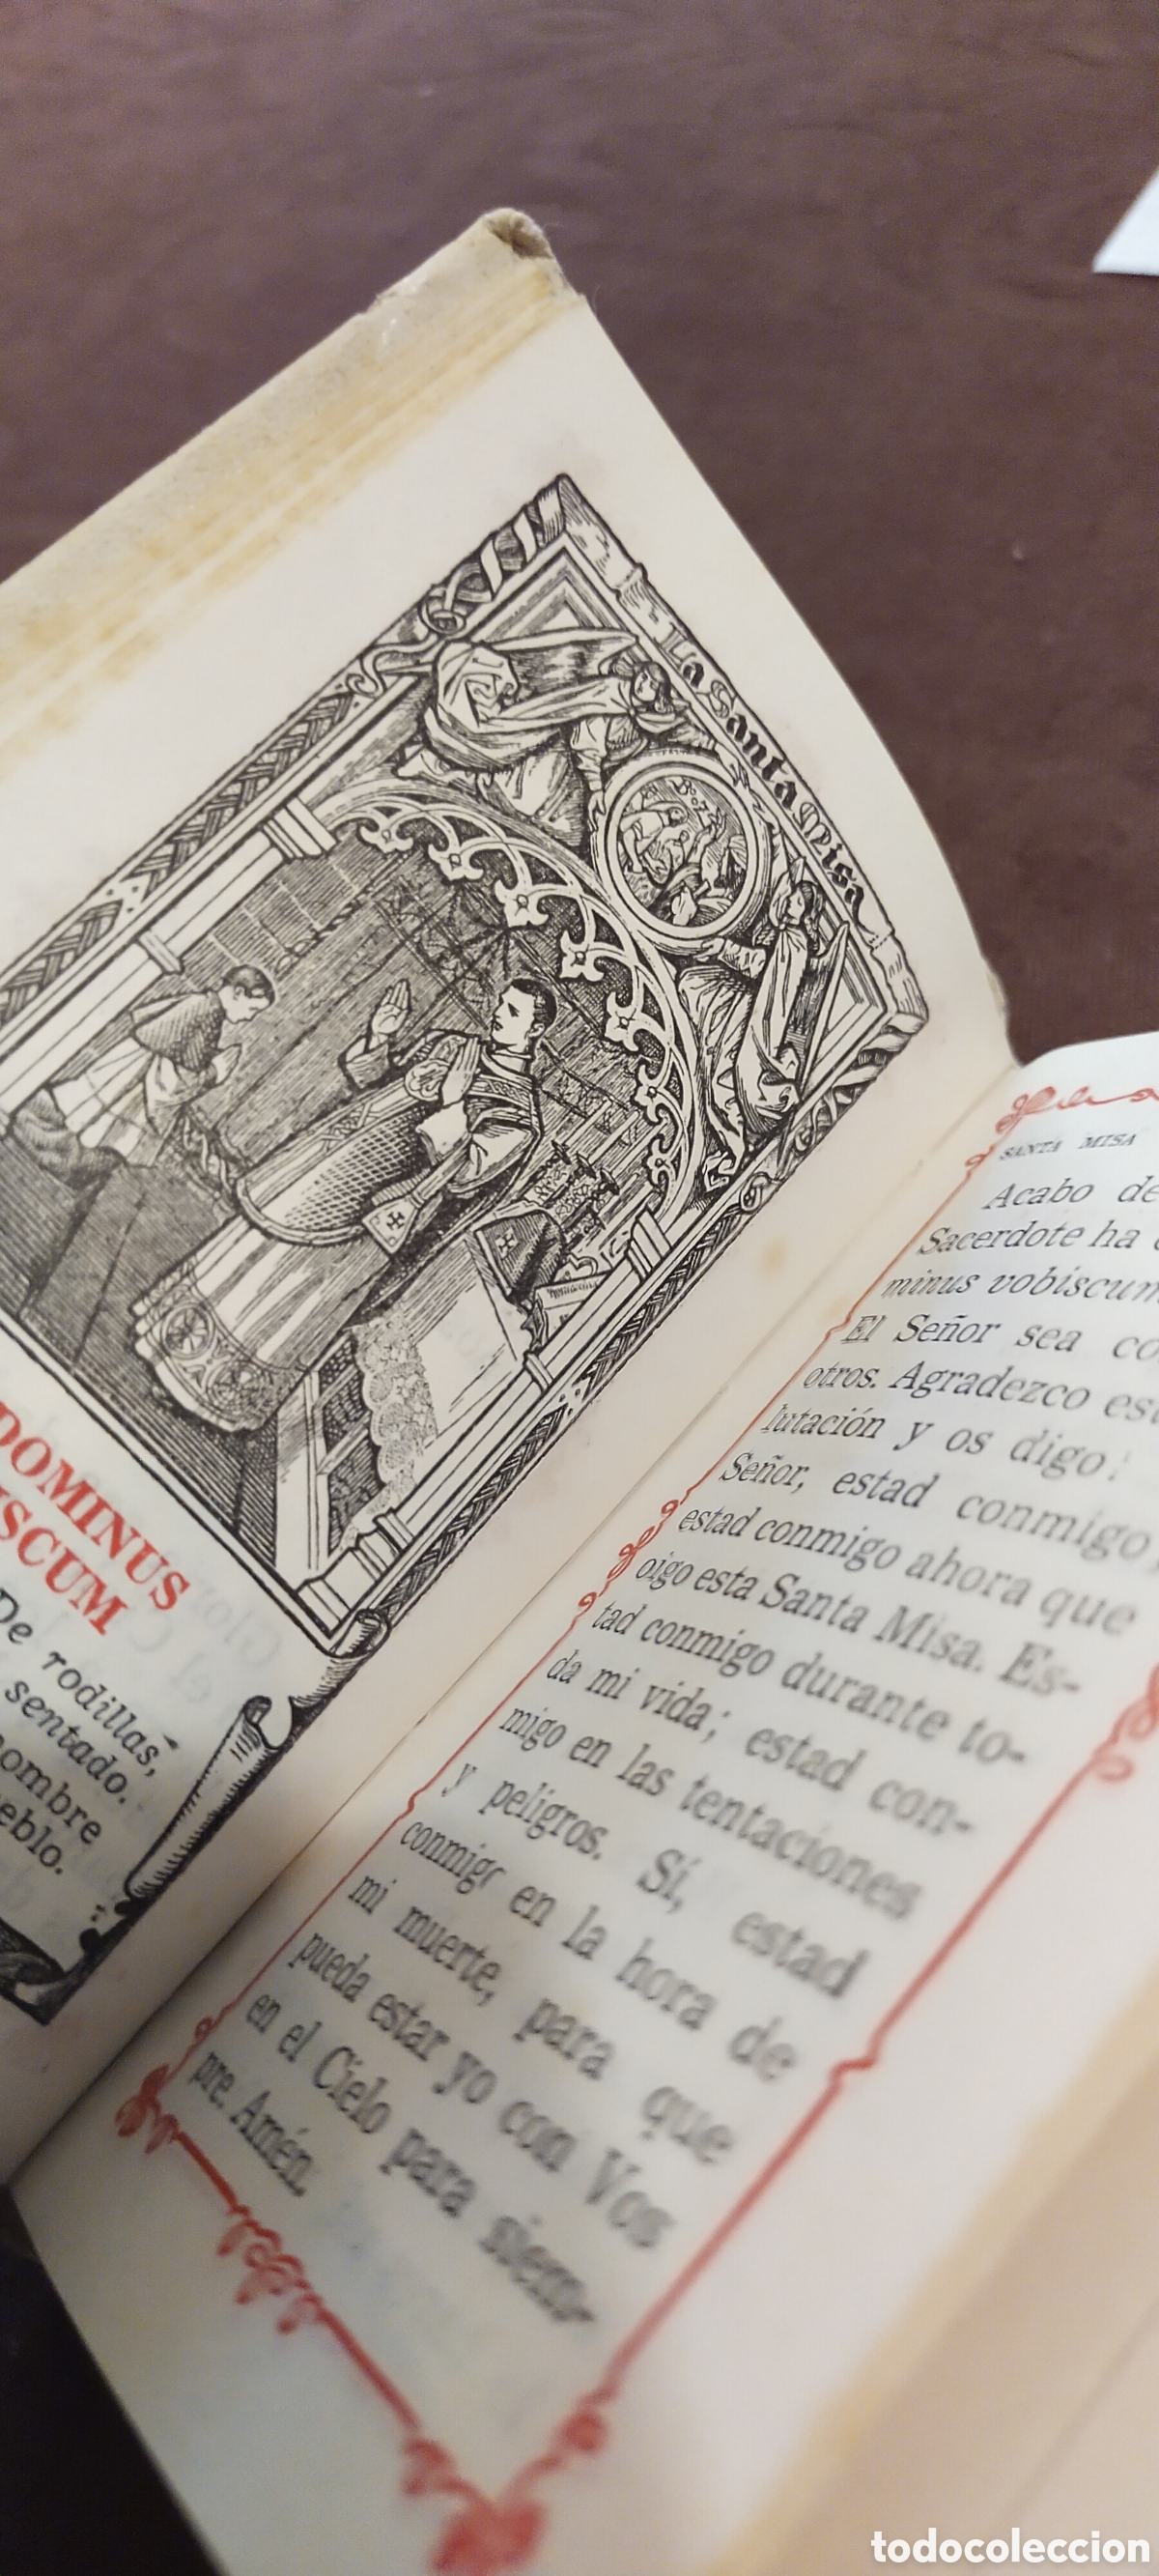 La Santa Misa
DOMINUS
ISCUM
De rodillas,
sentado.
nombre
eblo.
SANTA MISA
Acabo de
Sacerdote ha
minus vobiscum
El Señor sea co
otros. Agradezco est
lutación y os digo:
Señor, estad conmigo,
estad conmigo ahora que
oigo esta Santa Misa. Es-
tad conmigo durante to-
da mi vida; estad con-
migo en las tentaciones
y peligros. Sí, estad
conmigo en la hora de
mi muerte, para que
pueda estar yo con Vos
en el Cielo para siem-
pre. Amén.
todocoleccion